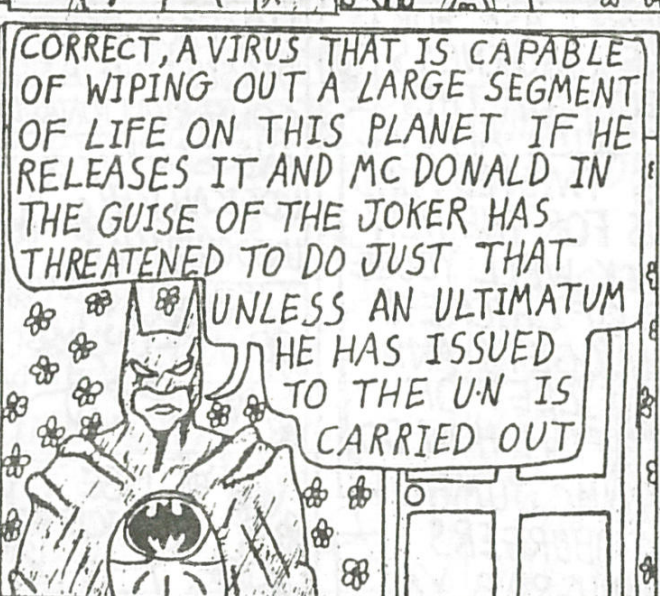 CORRECT, A VIRUS THAT IS CAPABLE
OF WIPING OUT A LARGE SEGMENT
OF LIFE ON THIS PLANET IF HE
RELEASES IT AND MC DONALD IN
THE GUISE OF THE JOKER HAS
THREATENED TO DO JUST THAT
UNLESS AN ULTIMATUM
HE HAS ISSUED
TO THE U·N IS
CARRIED OUT